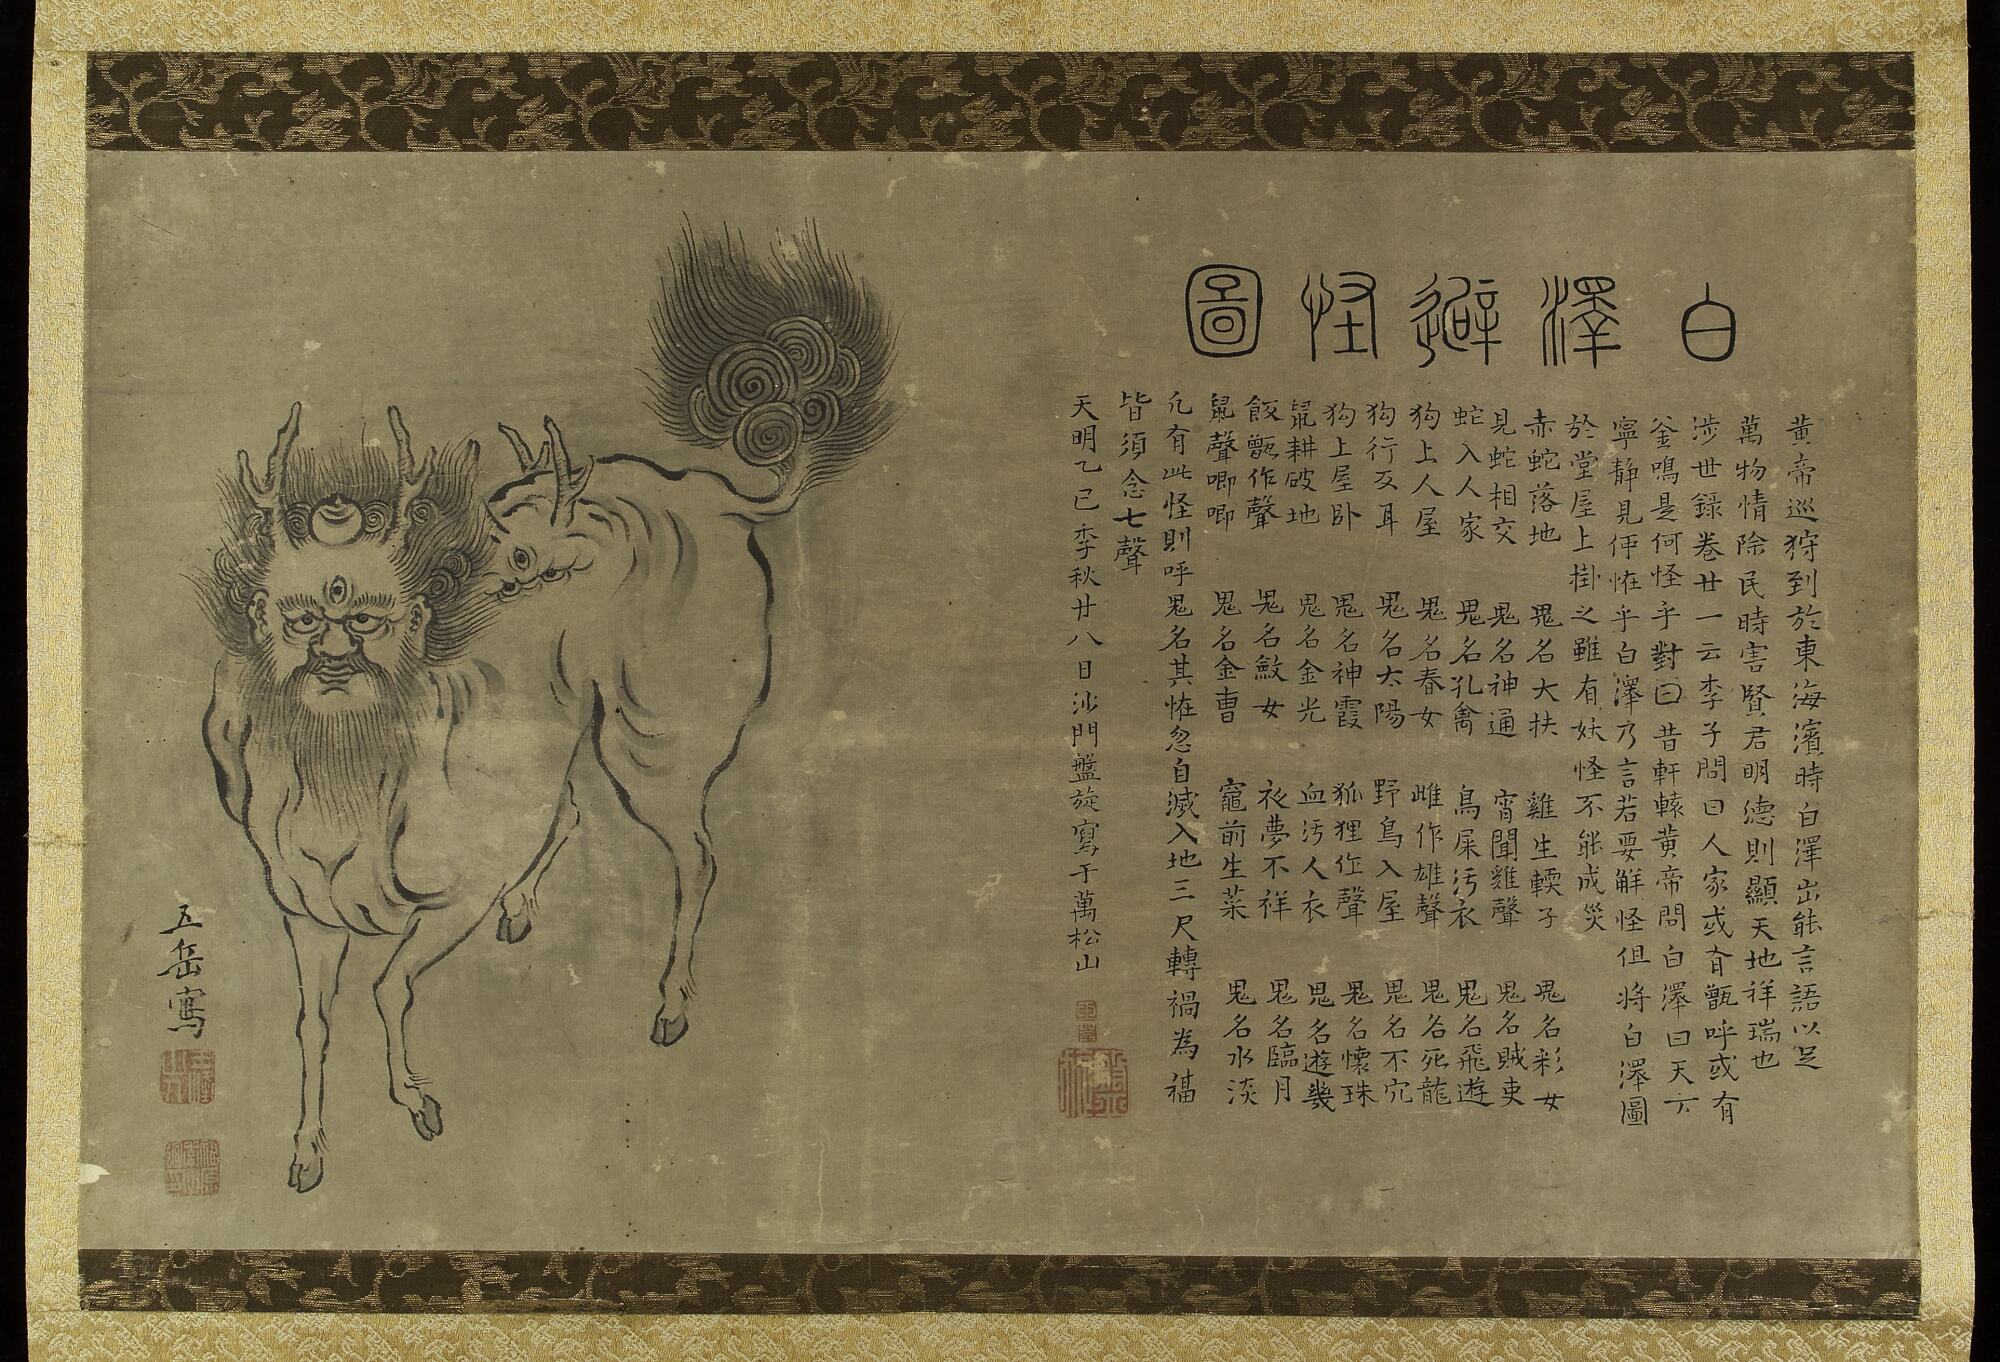 白澤避怪圖
黃帝巡狩到於東海濱時白澤出能言語以足
萬物情除民時害賢君明德則顯天地祥瑞也
涉世錄卷廿一云李子問曰人家或有甑呼或有
釜鳴是何怪乎對曰昔軒轅黃帝問白澤曰天下
寧靜見何恠乎白澤乃言若要解怪但將白澤圖
於堂屋上掛之雖有妖怪不能成災
赤蛇落地 鬼名大扶 雞生軟子 鬼名彩女
見蛇相交 鬼名神通 宵聞雞聲 鬼名賊吏
蛇入人家 鬼名孔禽 鳥屎污衣 鬼名飛遊
狗上人屋 鬼名春女 雌作雄聲 鬼名死龍
狗行反耳 鬼名太陽 野鳥入屋 鬼名不穴
狗上屋臥 鬼名神霞 狐狸作聲 鬼名懷珠
鼠耕破地 鬼名金光 血污人衣 鬼名遊幾
飯甑作聲 鬼名斂女 夜夢不祥 鬼名臨月
鼠聲唧唧 鬼名金曹 竈前生菜 鬼名水淡
凡有此怪則呼鬼名其恠忽自滅入地三尺轉禍為福
皆須念七聲
天明乙巳季秋廿八日沙門盤旋寫于萬松山
五岳寫